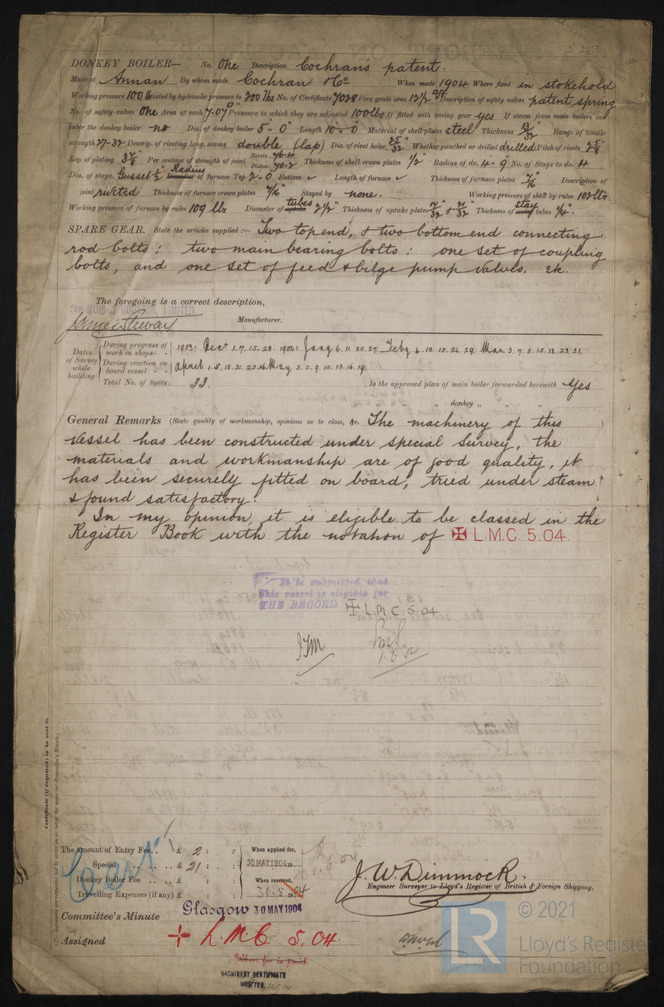 DONKEY BOILER— No. One Description Cochran's patent.
Made at Annan By whom made Cochran & Co When made 1904 Where fixed in stokehold
Working pressure 100 lbs tested by hydraulic pressure to 200 lbs No. of Certificate 7028 Fire grate area 13½ Description of safety valves patent spring
No. of safety valves One Area of each 7.07 Pressure to which they are adjusted 100 lbs If fitted with easing gear yes If steam from main boilers can
enter the donkey boiler no Dia. of donkey boiler 5-0" Length 10-0" Material of shell plates steel Thickness Range of tensile
strength 27-32 Descrip. of riveting long. seams double (lap) Dia. of rivet holes Whether punched or drilled drilled Pitch of rivets
Lap of plating 3⅞ Per centage of strength of joint Rivets Plates 70.2 Thickness of shell crown plates ½" Radius of do. 4-9 No. of Stays to do. 4
Dia. of stays. Gusset Radius of furnace Top 2-0" Bottom Length of furnace Thickness of furnace plates Description of
joint riveted Thickness of furnace crown plates Stayed by none. Working pressure of shell by rules 102 lbs
Working pressure of furnace by rules 109 lbs Diameter of tubes 2½" Thickness of uptake plates Thickness of stay tubes ¼".
SPARE GEAR. State the articles supplied:— Two top end, & two bottom end connecting
rod bolts: two main bearing bolts: one set of coupling
bolts, and one set of feed & bilge pump valves. &c.
The foregoing is a correct description,
Manufacturer.
Dates of Survey while building
During progress of work in shops - - 1903: Dec 1. 7. 15. 28. 1904: Jany 6. 11. 20. 27. Feby 4. 10. 13. 24. 29. Mar 3. 7. 8. 15. 18. 23. 31.
During erection on board vessel - - April 1. 5. 18. 21. 23. May 3. 9. 10. 13. 16. 19.
Total No. of visits 33 Is the approved plan of main boiler forwarded herewith Yes
" " " donkey " " "
General Remarks (State quality of workmanship, opinions as to class, &c. The machinery of this
vessel has been constructed under special survey, the
materials and workmanship are of good quality, it
has been securely fitted on board, tried under steam
& found satisfactory.
In my opinion it is eligible to be classed in the
Register Book with the notation of ✠ L.M.C. 5.04.
It is submitted that
this vessel is eligible for
THE RECORD ✠ L.M.C 5.04
Certificate (if required) to be sent to
The Amount of Entry Fee. . £ 2 : : When applied for,
Special £ 21 : : 30 MAY 1904
Donkey Boiler Fee £ : : When received,
Travelling Expenses (if any) £ : : 31.5.04
J. W. Dimmock.
Engineer Surveyor to Lloyd's Register of British & Foreign Shipping.
Committee's Minute Glasgow 30 MAY 1904
Assigned + L.M.C 5.04.
MACHINERY CERTIFICATE
WRITTEN
LR
© 2021
Lloyd's Register
Foundation